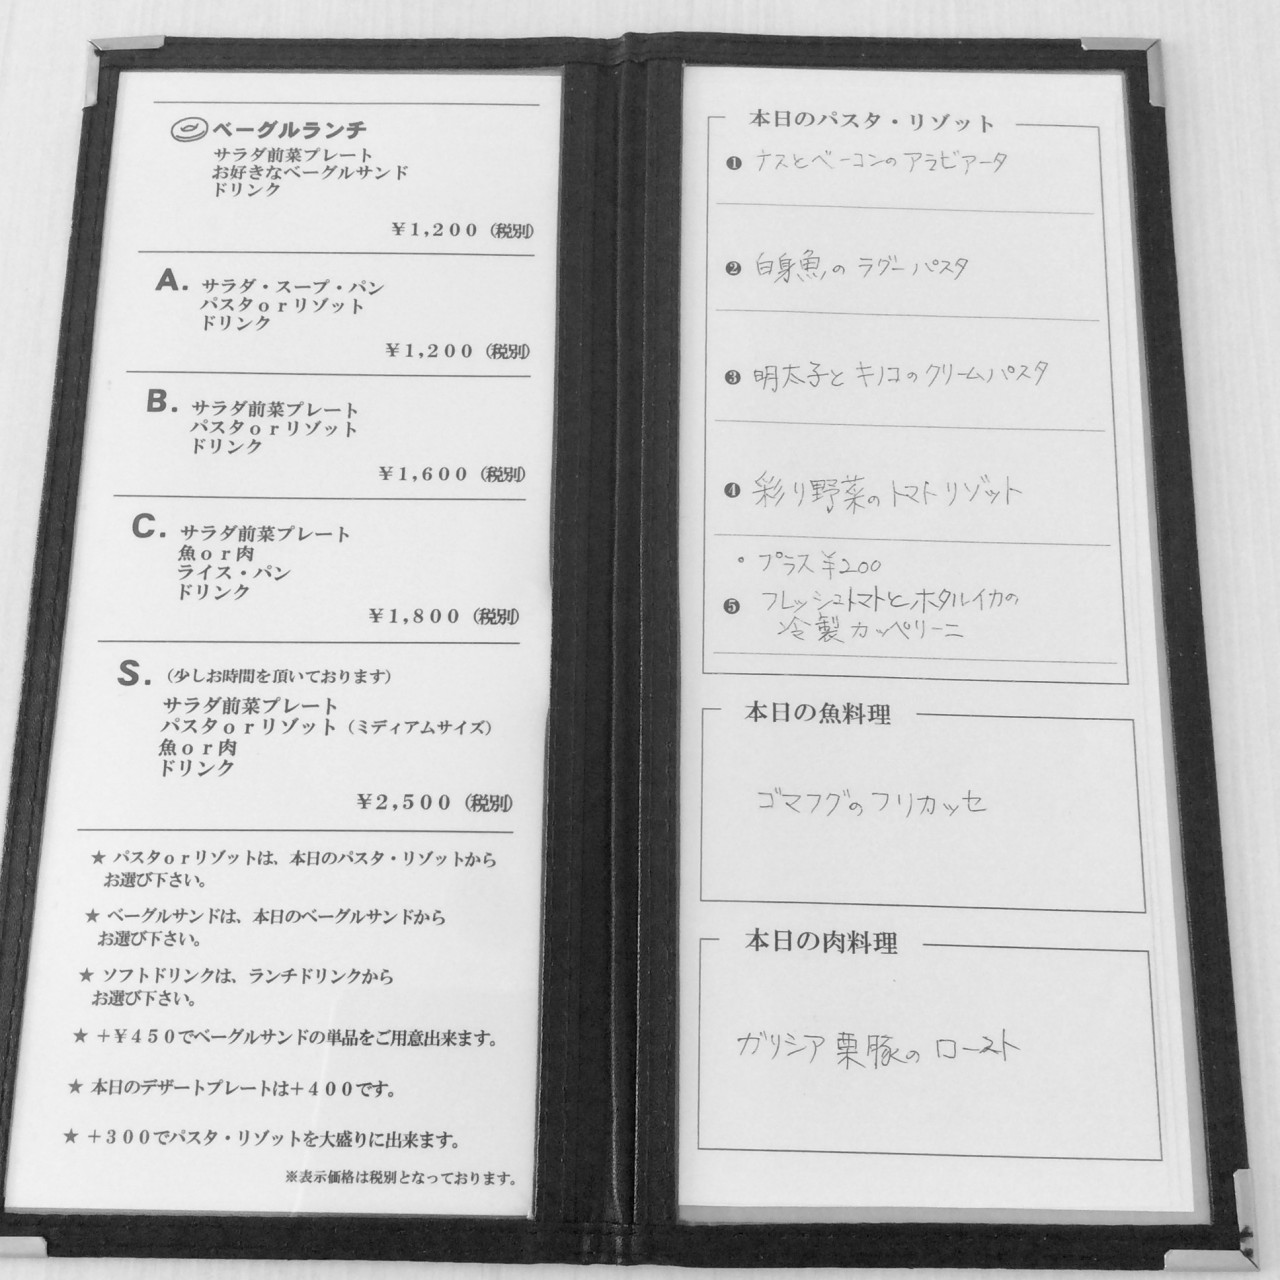 ベーグルランチ
サラダ前菜プレート
お好きなベーグルサンド
ドリンク
¥1,200(税別)
A. サラダ・スープ・パン
パスタorリゾット
ドリンク
¥1,200(税別)
B. サラダ前菜プレート
パスタorリゾット
ドリンク
¥1,600(税別)
C. サラダ前菜プレート
魚or肉
ライス・パン
ドリンク
¥1,800(税別)
S. (少しお時間を頂いております)
サラダ前菜プレート
パスタorリゾット(ミディアムサイズ)
魚or肉
ドリンク
¥2,500(税別)
★ パスタorリゾットは、本日のパスタ・リゾットから
お選び下さい。
★ ベーグルサンドは、本日のベーグルサンドから
お選び下さい。
★ ソフトドリンクは、ランチドリンクから
お選び下さい。
★ +¥450でベーグルサンドの単品をご用意出来ます。
★ 本日のデザートプレートは+400です。
★ +300でパスタ・リゾットを大盛りに出来ます。
※表示価格は税別となっております。
本日のパスタ・リゾット
❶ ナスとベーコンのアラビアータ
❷ 白身魚のラグーパスタ
❸ 明太子とキノコのクリームパスタ
❹ 彩り野菜のトマトリゾット
・プラス¥200
❺ フレッシュトマトとホタルイカの
冷製カッペリーニ
本日の魚料理
ゴマフグのフリカッセ
本日の肉料理
ガリシア栗豚のロースト